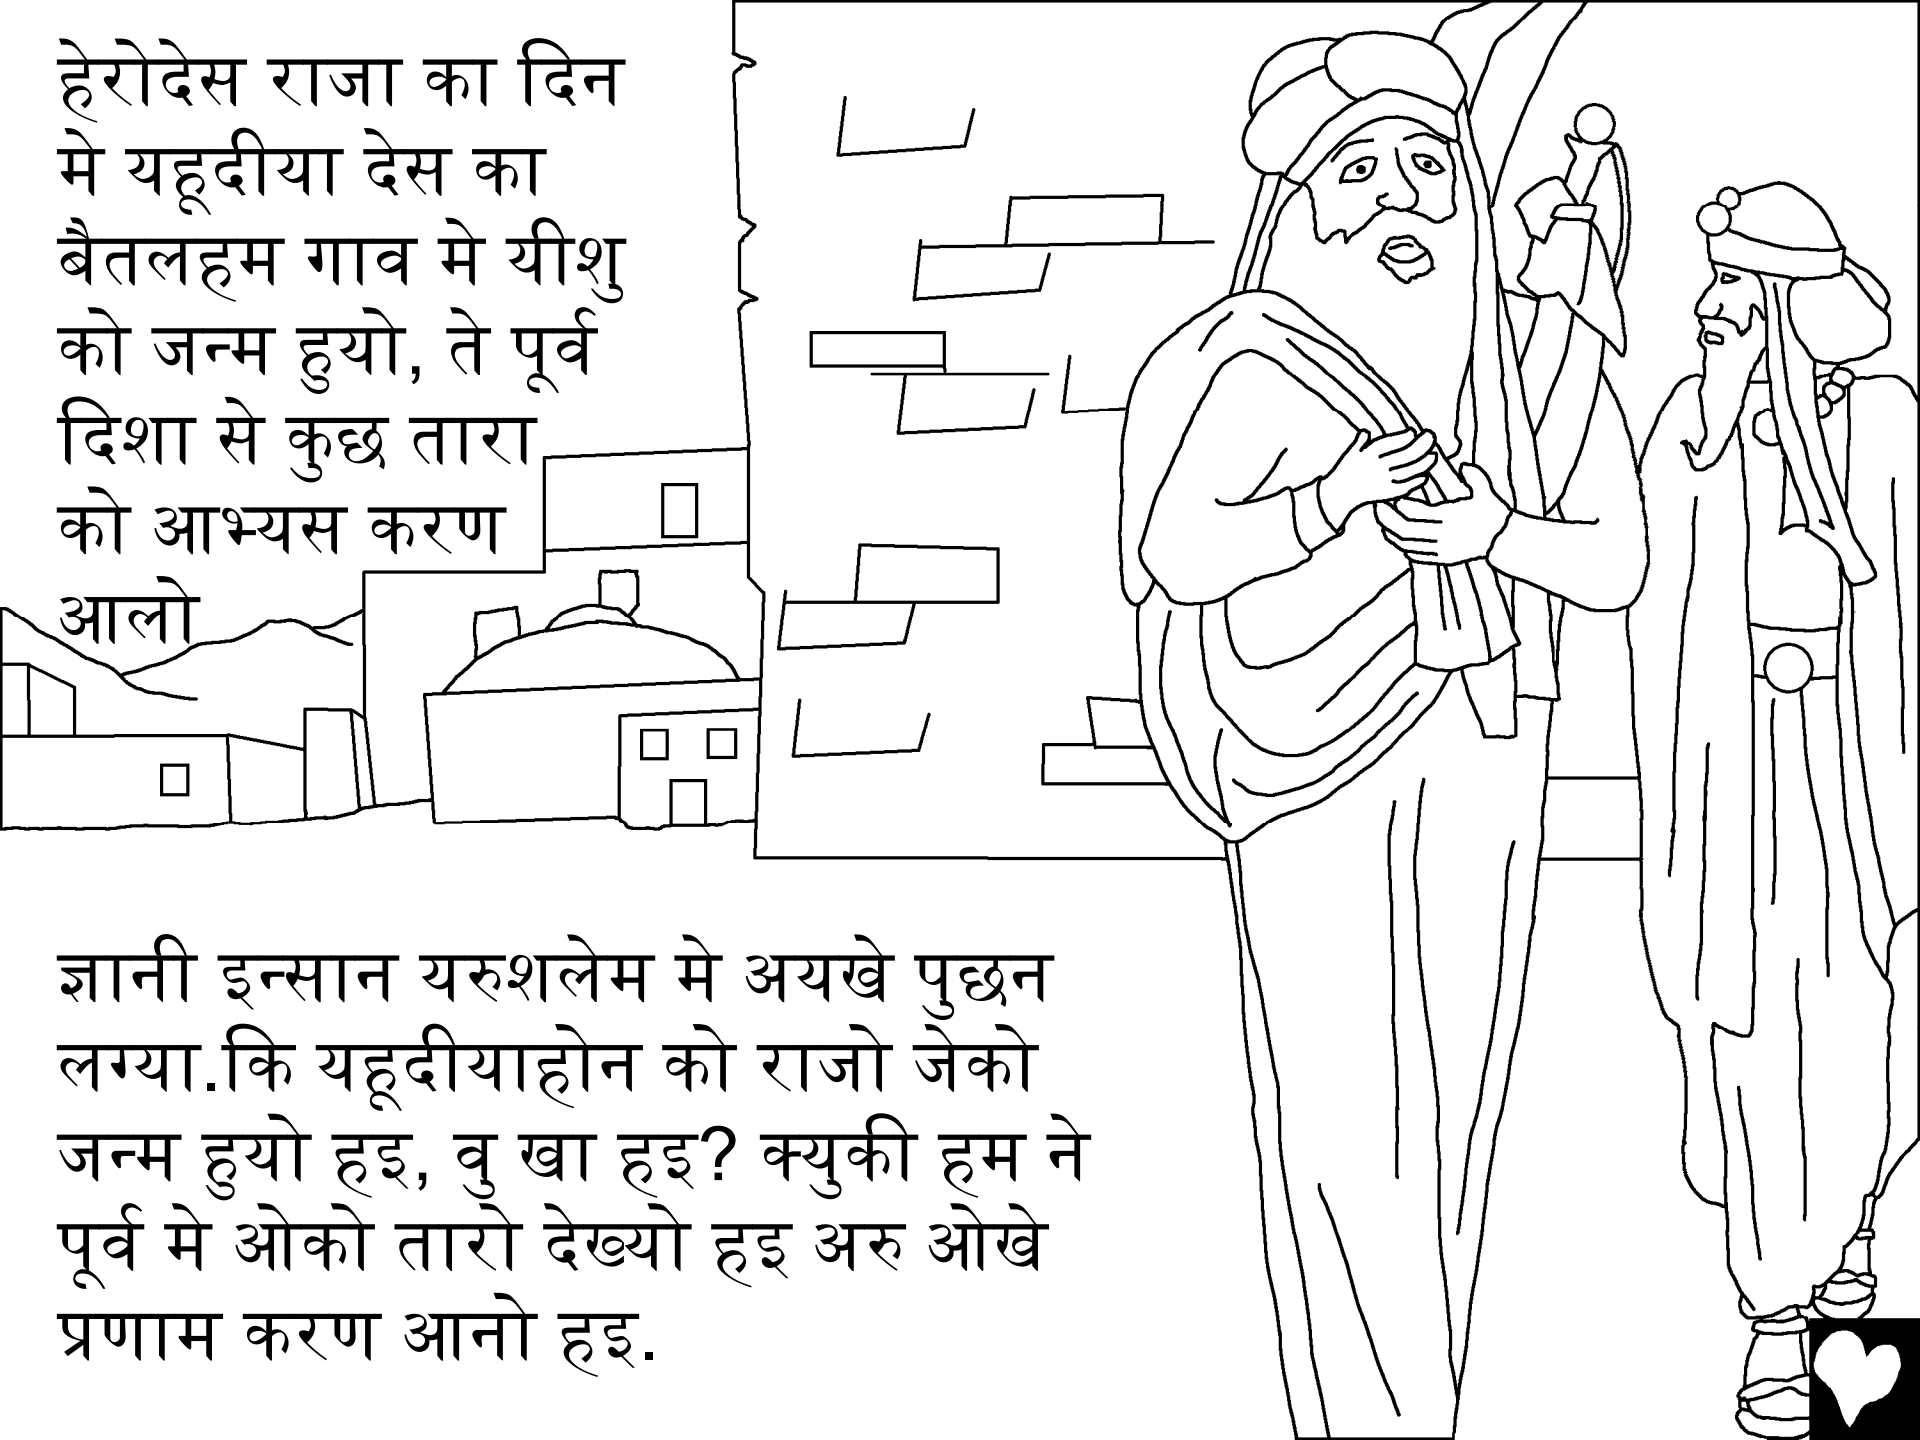 हेरोदेस राजा का दिन
मे यहूदीया देस का
बैतलहम गाव मे यीशु
को जन्म हुयो, ते पूर्व
दिशा से कुछ तारा
को आभ्यस करण
आलो
ज्ञानी इन्सान यरुशलेम मे अयखे पुछन
लग्या.कि यहूदीयाहोन को राजो जेको
जन्म हुयो हइ, वु खा हइ? क्युकी हम ने
पूर्व मे ओको तारो देख्यो हइ अरु ओखे
प्रणाम करण आनो हइ.